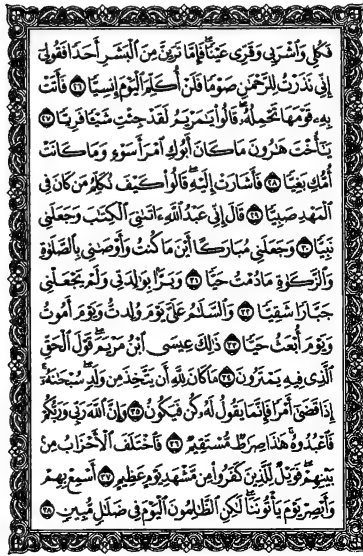 فَكُلِي وَاشْرَبِي وَقَرِّي عَيْنًا ۖ فَإِمَّا تَرَيِنَّ مِنَ الْبَشَرِ أَحَدًا فَقُولِي
إِنِّي نَذَرْتُ لِلرَّحْمَٰنِ صَوْمًا فَلَنْ أُكَلِّمَ الْيَوْمَ إِنسِيًّا ۝٢٦ فَأَتَتْ
بِهِ قَوْمَهَا تَحْمِلُهُ ۖ قَالُوا يَا مَرْيَمُ لَقَدْ جِئْتِ شَيْئًا فَرِيًّا ۝٢٧
يَا أُخْتَ هَارُونَ مَا كَانَ أَبُوكِ امْرَأَ سَوْءٍ وَمَا كَانَتْ
أُمُّكِ بَغِيًّا ۝٢٨ فَأَشَارَتْ إِلَيْهِ ۖ قَالُوا كَيْفَ نُكَلِّمُ مَن كَانَ فِي
الْمَهْدِ صَبِيًّا ۝٢٩ قَالَ إِنِّي عَبْدُ اللَّهِ آتَانِيَ الْكِتَابَ وَجَعَلَنِي
نَبِيًّا ۝٣٠ وَجَعَلَنِي مُبَارَكًا أَيْنَ مَا كُنتُ وَأَوْصَانِي بِالصَّلَاةِ
وَالزَّكَاةِ مَا دُمْتُ حَيًّا ۝٣١ وَبَرًّا بِوَالِدَتِي وَلَمْ يَجْعَلْنِي
جَبَّارًا شَقِيًّا ۝٣٢ وَالسَّلَامُ عَلَيَّ يَوْمَ وُلِدتُّ وَيَوْمَ أَمُوتُ
وَيَوْمَ أُبْعَثُ حَيًّا ۝٣٣ ذَٰلِكَ عِيسَى ابْنُ مَرْيَمَ ۚ قَوْلَ الْحَقِّ
الَّذِي فِيهِ يَمْتَرُونَ ۝٣٤ مَا كَانَ لِلَّهِ أَن يَتَّخِذَ مِن وَلَدٍ ۖ سُبْحَانَهُ ۚ
إِذَا قَضَىٰ أَمْرًا فَإِنَّمَا يَقُولُ لَهُ كُن فَيَكُونُ ۝٣٥ وَإِنَّ اللَّهَ رَبِّي وَرَبُّكُمْ
فَاعْبُدُوهُ ۚ هَٰذَا صِرَاطٌ مُّسْتَقِيمٌ ۝٣٦ فَاخْتَلَفَ الْأَحْزَابُ مِن
بَيْنِهِمْ ۖ فَوَيْلٌ لِّلَّذِينَ كَفَرُوا مِن مَّشْهَدِ يَوْمٍ عَظِيمٍ ۝٣٧ أَسْمِعْ بِهِمْ
وَأَبْصِرْ يَوْمَ يَأْتُونَنَا ۖ لَٰكِنِ الظَّالِمُونَ الْيَوْمَ فِي ضَلَالٍ مُّبِينٍ ۝٣٨